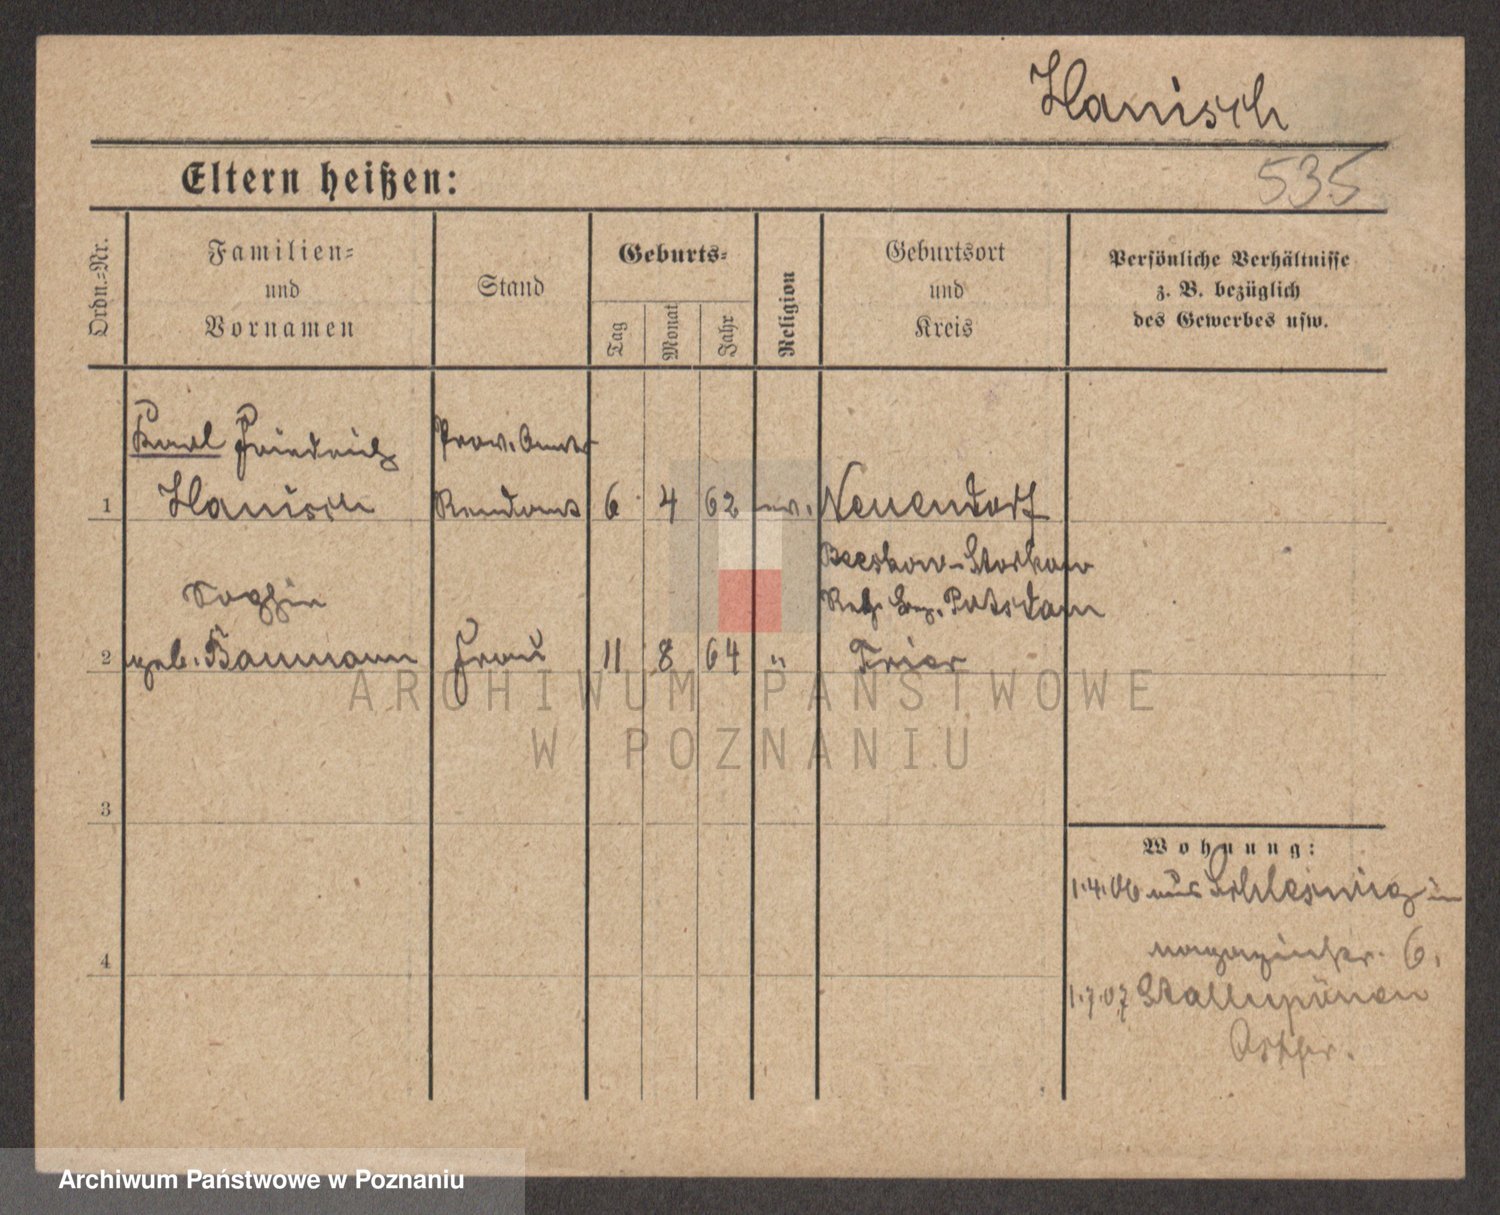 Hanisch
535
Eltern heißen:
Ordn.-Nr.
Familien-
und
Vornamen
Stand
Geburts-
Tag
Monat
Jahr
Religion
Geburtsort
und
Kreis
Persönliche Verhältnisse
z. B. bezüglich
des Gewerbes usw.
Karl Friedrich
Prov. Amts
1 Hanisch Rendant 6 4 62 ev. Neuendorf
Beeskow-Storkow
Reg. Bez. Potsdam
Sophie
2 geb. Baumann Frau 11 8 64 " Trier
3
4
Wohnung:
1.4.06 aus Schleswig in
Magazinstr. 6.
1.7.07 Stallupönen
Ostpr.
ARCHIWUM PAŃSTWOWE
W POZNANIU
Archiwum Państwowe w Poznaniu